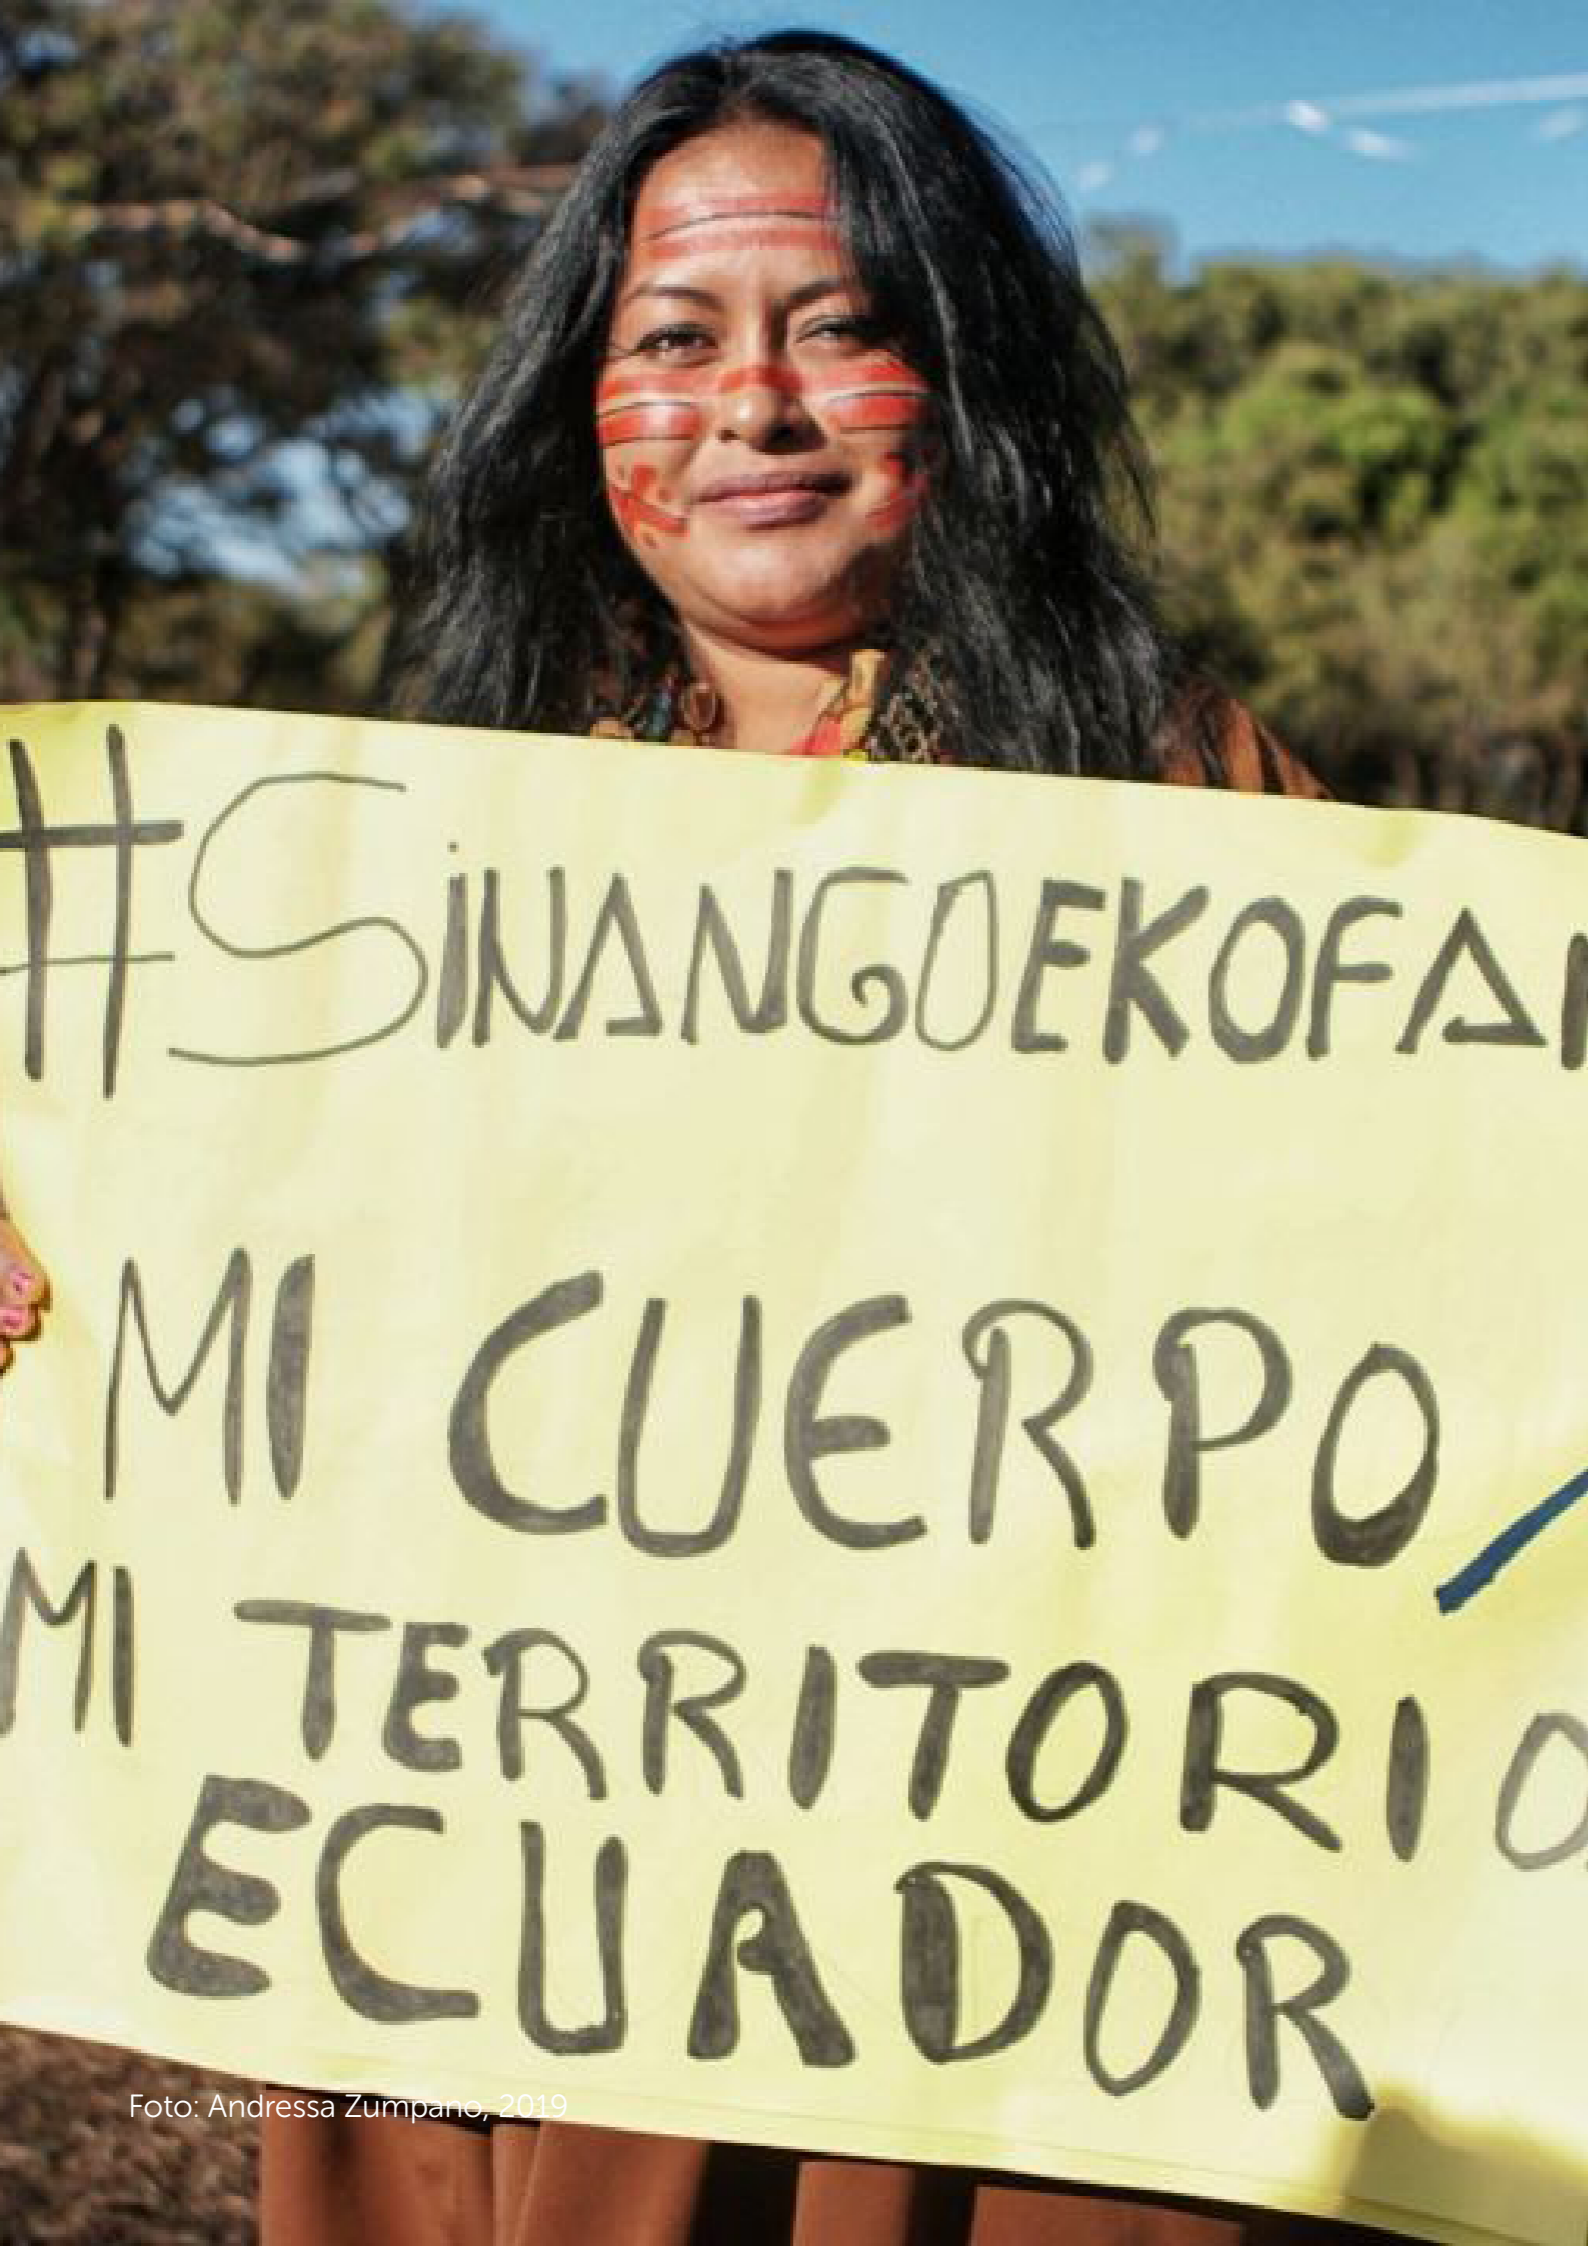 #SiNANGOEKOFAN
MI CUERPO
MI TERRITORIO
ECUADOR
Foto: Andressa Zumpano, 2019